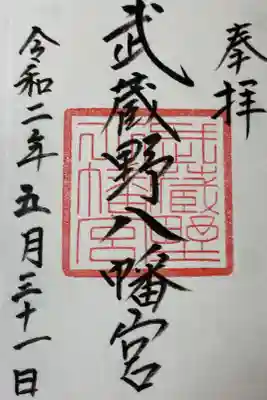 奉拝
武蔵野八幡宮
令和二年五月三十一日
武蔵野八幡宮